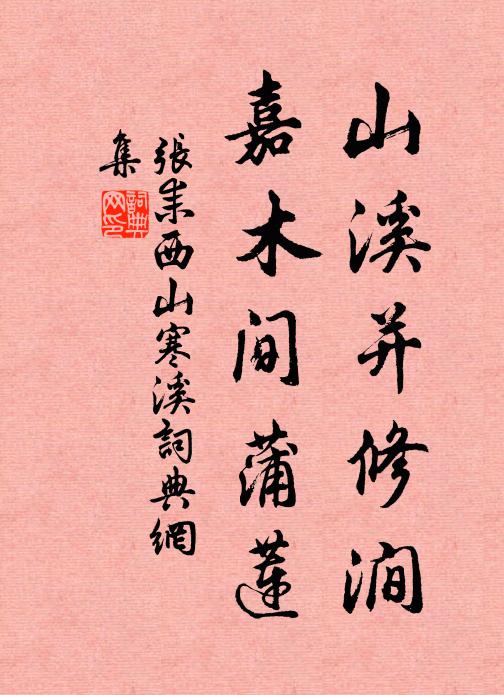 山溪并修澗
嘉木間蒲蓮
張耒西山寒溪詞典網
集
詞典
网印